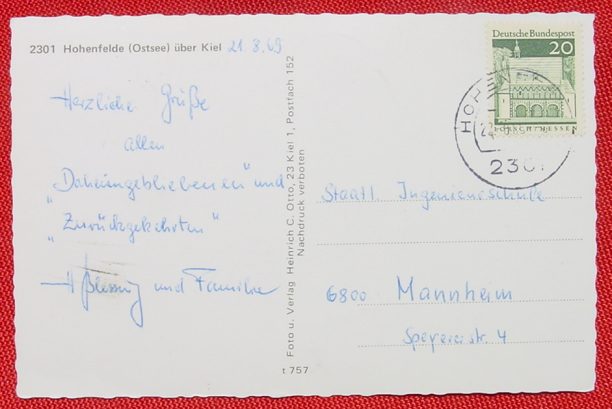 2301 Hohenfelde (Ostsee) über Kiel 21 8.69
Herzliche Grüße
allen
"Daheimgebliebenen" und
"Zurückgekehrten"
und Familie
Foto u. Verlag Heinrich C. Otto, 23 Kiel 1, Postfach 152
Nachdruck verboten
t 757
Deutsche Bundespost
20
LORSCH/HESSEN
2301
Staatl. Ingenieurschule
6800 Mannheim
Speyererstr. 4